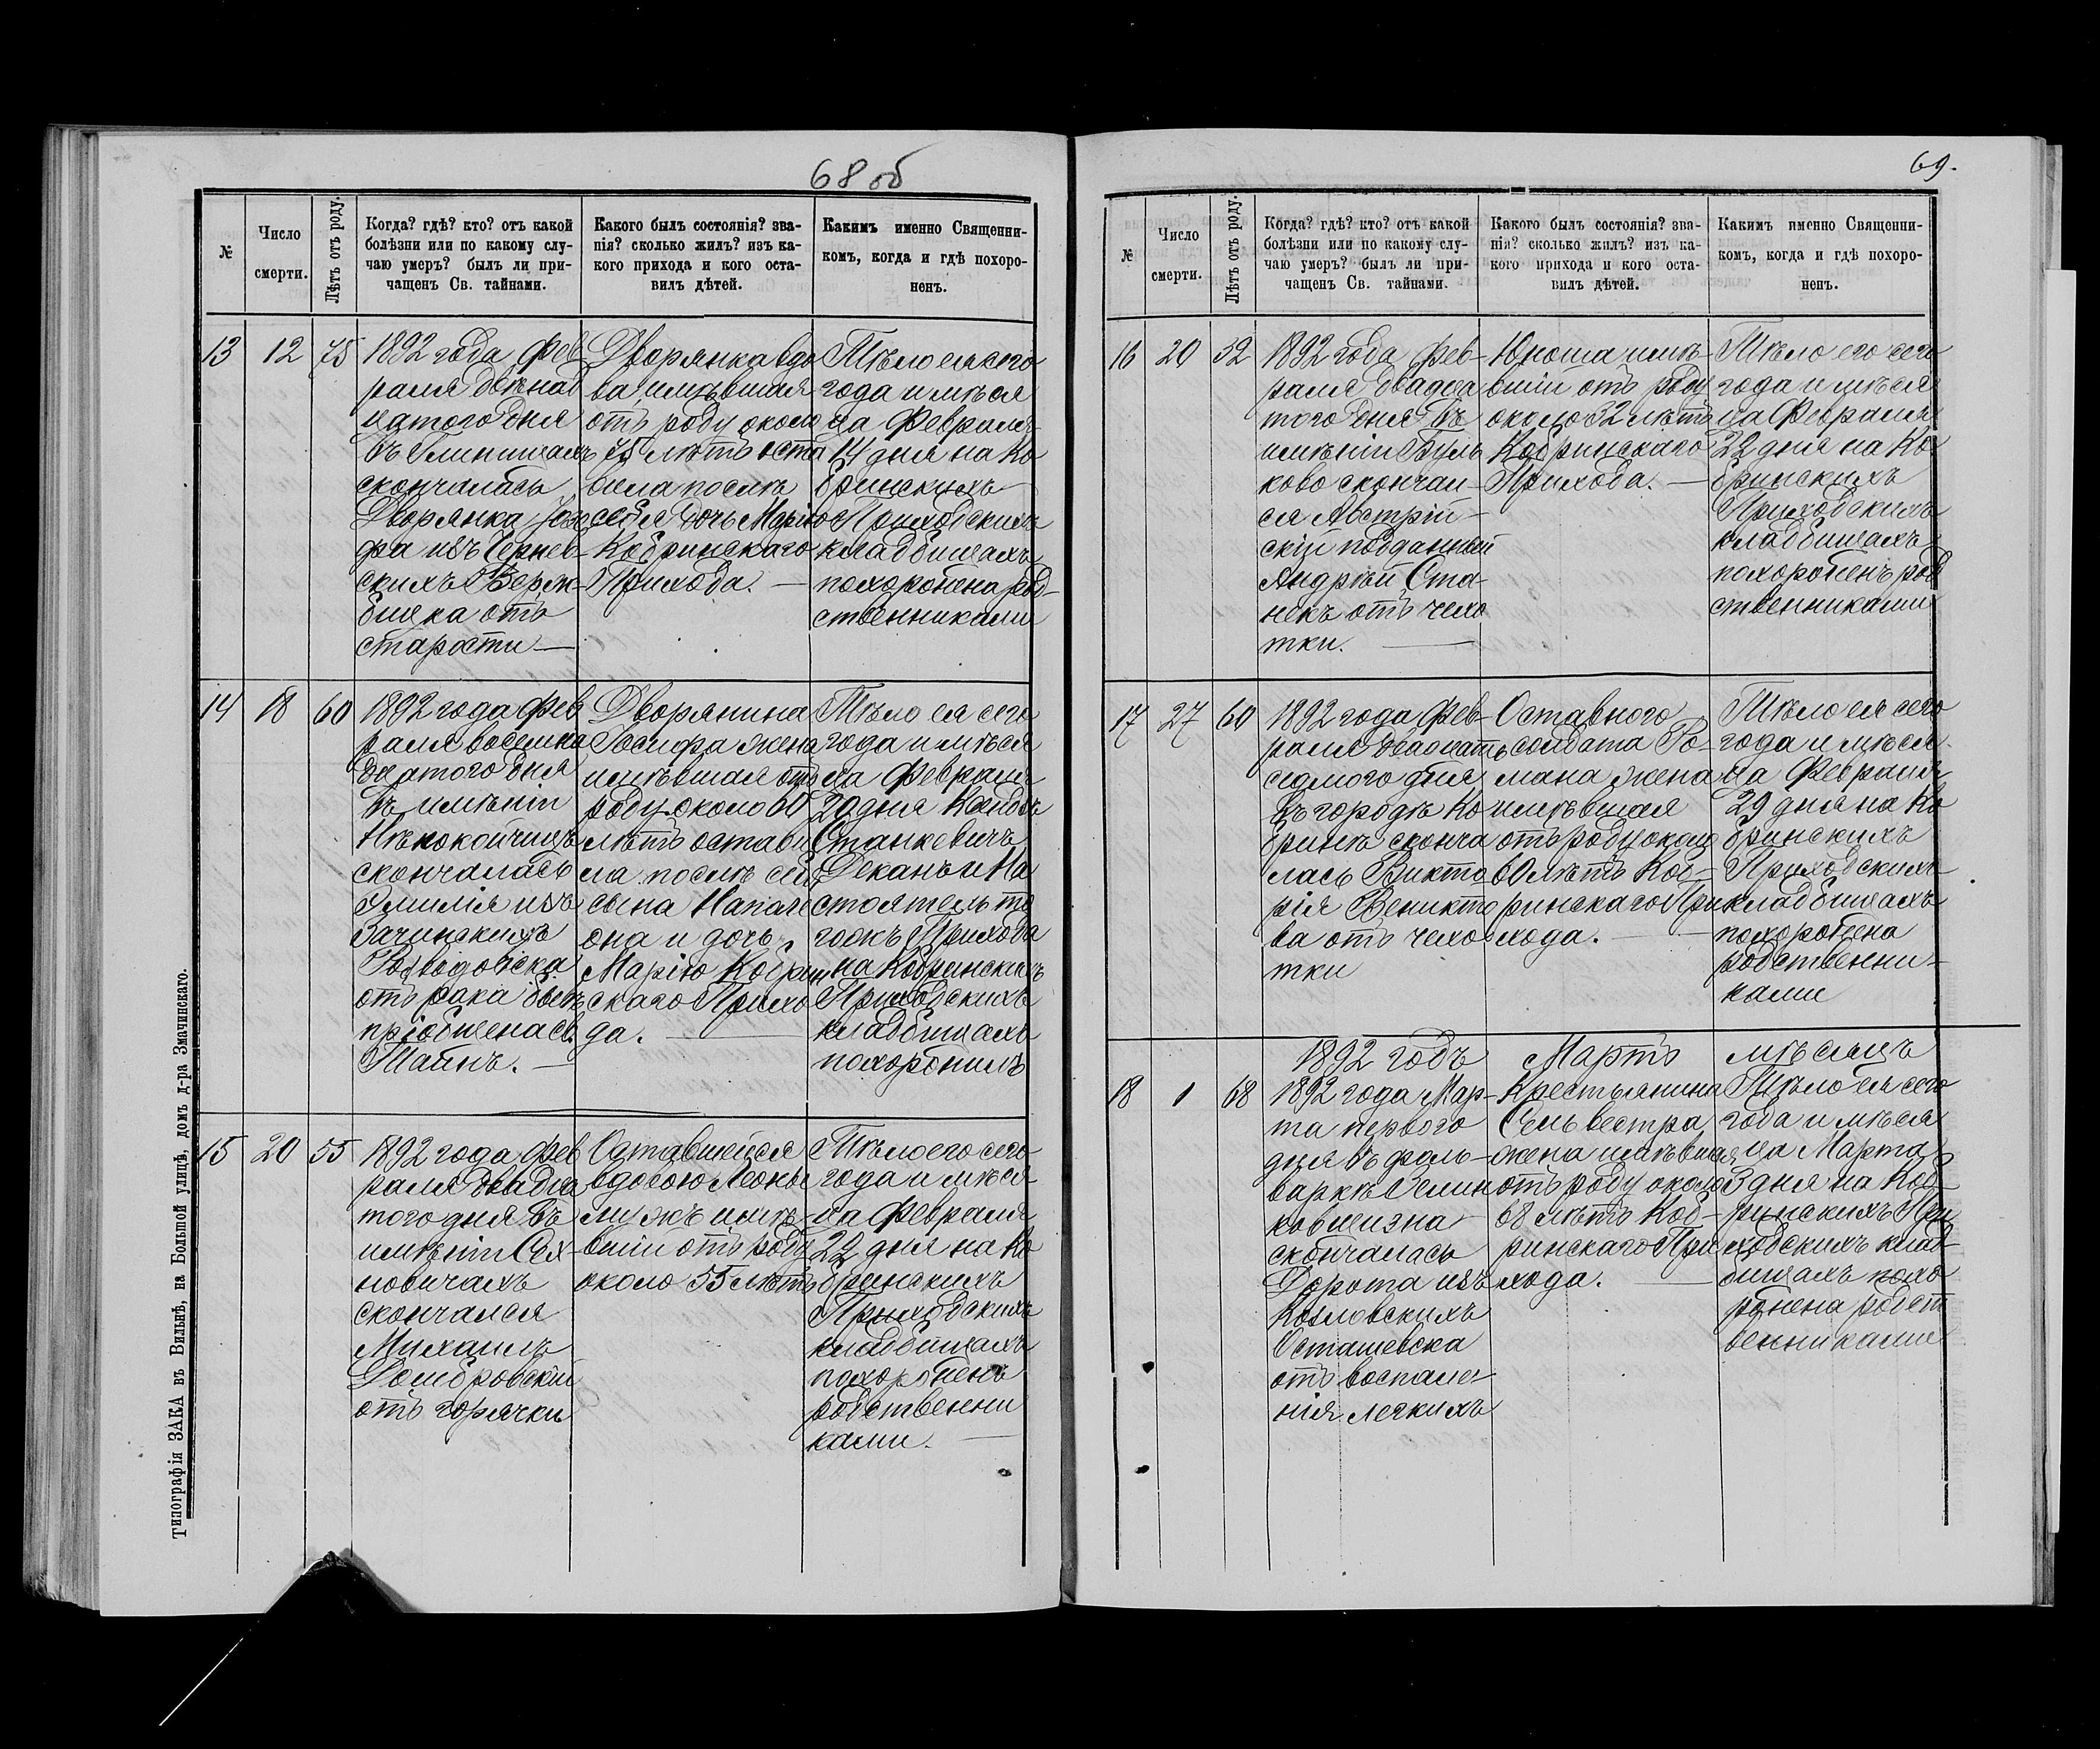 68 об
№
Число
смерти.
Лѣтъ отъ роду.
Когда? гдѣ? кто? отъ какой
болѣзни или по какому слу-
чаю умеръ? былъ ли при-
чащенъ Св. тайнами.
Какого былъ состоянія? зва-
нія? сколько жилъ? изъ ка-
кого прихода и кого оста-
вилъ дѣтей.
Какимъ именно Священни-
комъ, когда и гдѣ похоро-
ненъ.
13
12
75
1892 года Фев
раля двѣнад
цатого дня
въ Глинищахъ
скончалась
Дворянка Юзе
фа изъ Чернев
скихъ Верж-
бицка отъ
старости —
Дворянка вдо
ва имѣвшая
отъ роду около
75 лѣтъ оста
вила послѣ
себя дочь Марію
Кобринскаго
Прихода. —
Тѣло ея сего
года и мѣся
ца Февраля
14 дня на Ко
бринскихъ
Приходскихъ
кладбищахъ
похоронена род-
ственниками
14
18
60
1892 года Фев
раля восемна
дцатого дня
въ имѣніи
Нѣпокойчицъ
скончалась
Эмилія изъ
Зачинскихъ
отъ рака бывъ
пріобщена св.
Таинъ. —
Дворянина
Іосифа жена
имѣвшая отъ
роду около 60
лѣтъ остави
ла послѣ себя
сына Напале
она и дочь
Марію Кобрин
скаго Прихо
да. —
Тѣло ея сего
года и мѣся
ца Февраля
20 дня Ксендзъ
Станкевичъ
Деканъ и На
стоятель то
гожъ Прихода
на Кобринскихъ
Приходскихъ
кладбищахъ
похоронилъ
15
20
55
1892 года Фев
раля двадца
того дня въ
имѣніи Сех-
новичахъ
скончался
Михаилъ
Домбровскій
отъ горячки
Оставшейся
вдовою Леоны
мужъ имѣ-
вшій отъ роду
около 55 лѣтъ
Тѣло его сего
года и мѣся
ца Февраля
22 дня на Ко
бринскихъ
Приходскихъ
кладбищахъ
похороненъ
родственни
ками. —
Типографія ЗАКА въ Вильнѣ, на Большой улицѣ, домъ д-ра Змачинскаго.
69.
№
Число
смерти.
Лѣтъ отъ роду.
Когда? гдѣ? кто? отъ какой
болѣзни или по какому слу-
чаю умеръ? былъ ли при-
чащенъ Св. тайнами.
Какого былъ состоянія? зва-
нія? сколько жилъ? изъ ка-
кого прихода и кого оста-
вилъ дѣтей.
Какимъ именно Священни-
комъ, когда и гдѣ похоро-
ненъ.
16
20
32
1892 года Фев-
раля двадца
того дня въ
имѣніи Буль
ково скончал-
ся Австрій-
скій подданный
Андрѣй Ста-
некъ отъ чехо
тки. —
Юноша имѣ-
вшій отъ роду
около 32 лѣтъ
Кобринскаго
Прихода. —
Тѣло его сего
года и мѣся
ца Февраля
22 дня на Ко
бринскихъ
Приходскихъ
кладбищахъ
похороненъ род
ственниками
17
27
60
1892 года Фев-
раля двадцать
седмого дня
въ городѣ Ко
бринѣ сконча
лась Викто
рія Веникто
ва отъ чехо
тки
Оставного
солдата Ро-
мана жена
имѣвшая
отъ роду около
60 лѣтъ Коб-
ринскаго При
хода. —
Тѣло ея сего
года и мѣся
ца Февраля
29 дня на Ко
бринскихъ
Приходскихъ
кладбищахъ
похоронена
родственни-
ками
1892 годъ Мартъ мѣсяцъ
18
1
68
1892 года Мар-
та первого
дня въ фоль-
скончалась
Дорота изъ
Козловскихъ
Осташевска
отъ воспале
нія легкихъ
Крестьянина
Сильвестра
жена имѣвшая
отъ роду около
68 лѣтъ Коб-
ринскаго При
хода. —
Тѣло ея сего
года и мѣся
ца Марта
3 дня на Коб-
ринскихъ При
ходскихъ клад-
бищахъ похо
ронена родст
венниками